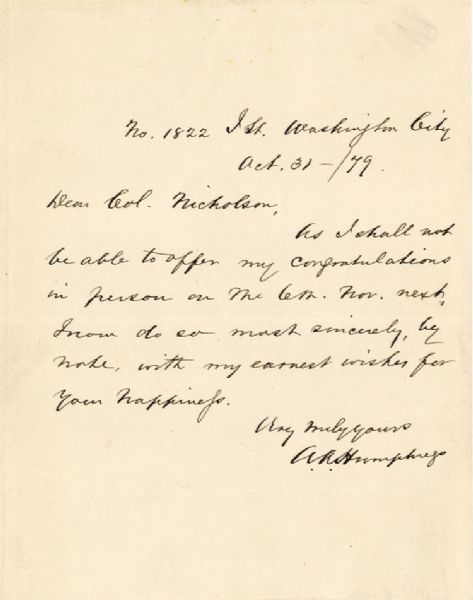 No. 1822 I St. Washington City
Oct. 31 - /79.
Dear Col. Nicholson,
As I shall not
be able to offer my congratulations
in person on the 6th. Nov. next,
I now do so most sincerely, by
note, with my earnest wishes for
your happiness.
Very truly yours
A. A. Humphreys